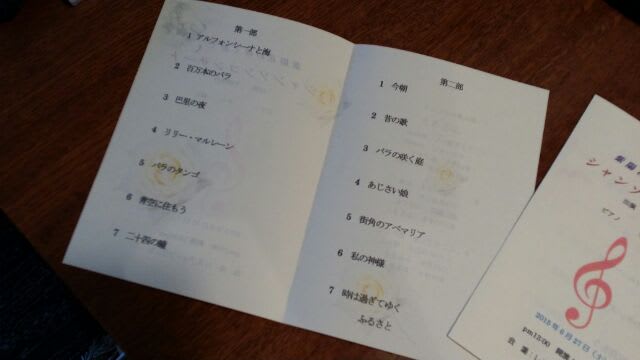 第一部
1 アルフォンシーナと海
2 百万本のバラ
3 巴里の夜
4 リリー・マルレーン
5 バラのタンゴ
6 青空に住もう
7 二十四の瞳
第二部
1 今朝
2 昔の歌
3 バラの咲く庭
4 あじさい娘
5 街角のアベマリア
6 私の神様
7 時は過ぎてゆく
ふるさと
シャンソ
ピアノ
2015年6月27日
pm13:00 開
会場